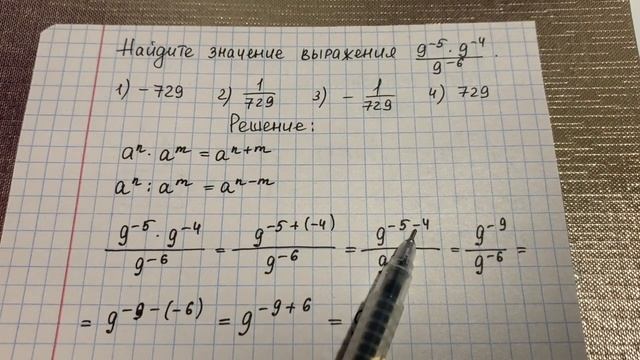 Найдите значение выражения (9⁻⁵ · 9⁻⁴)/9⁻⁶.
1) -729 2) 1/729 3) - 1/729 4) 729
Решение:
aⁿ · aᵐ = aⁿ⁺ᵐ
aⁿ : aᵐ = aⁿ⁻ᵐ
(9⁻⁵ · 9⁻⁴)/9⁻⁶ = 9⁻⁵⁺⁽⁻⁴⁾/9⁻⁶ = 9⁻⁵⁻⁴/9 = 9⁻⁹/9⁻⁶ =
= 9⁻⁹⁻⁽⁻⁶⁾ = 9⁻⁹⁺⁶ =